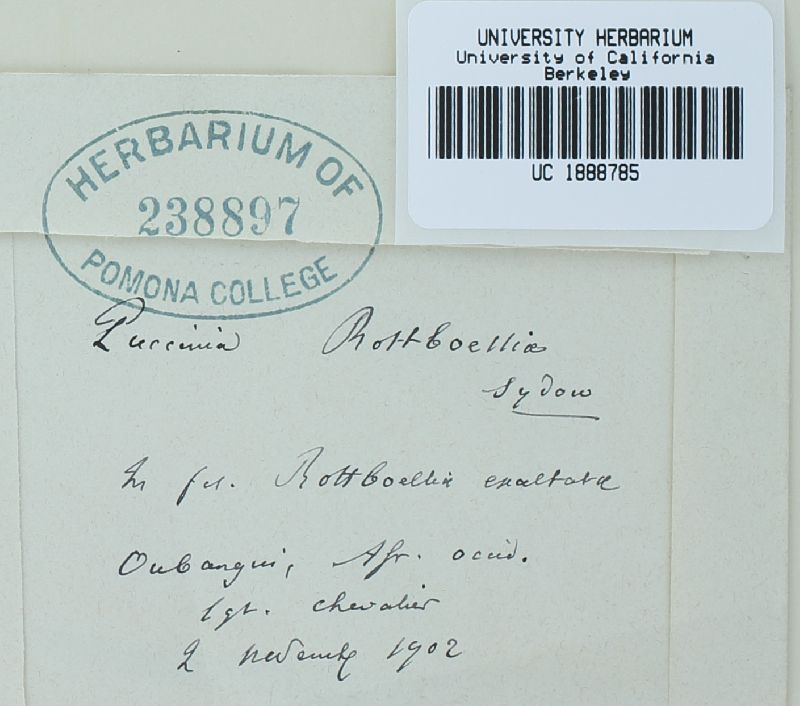 UNIVERSITY HERBARIUM
University of California
Berkeley
UC 1888785
HERBARIUM OF
238897
POMONA COLLEGE
Puccinia Rottboelliæ
Sydow
In fol. Rottboelliæ exaltatæ
Oubangui, Afr. occid.
lgt. Chevalier
2 novembre 1902